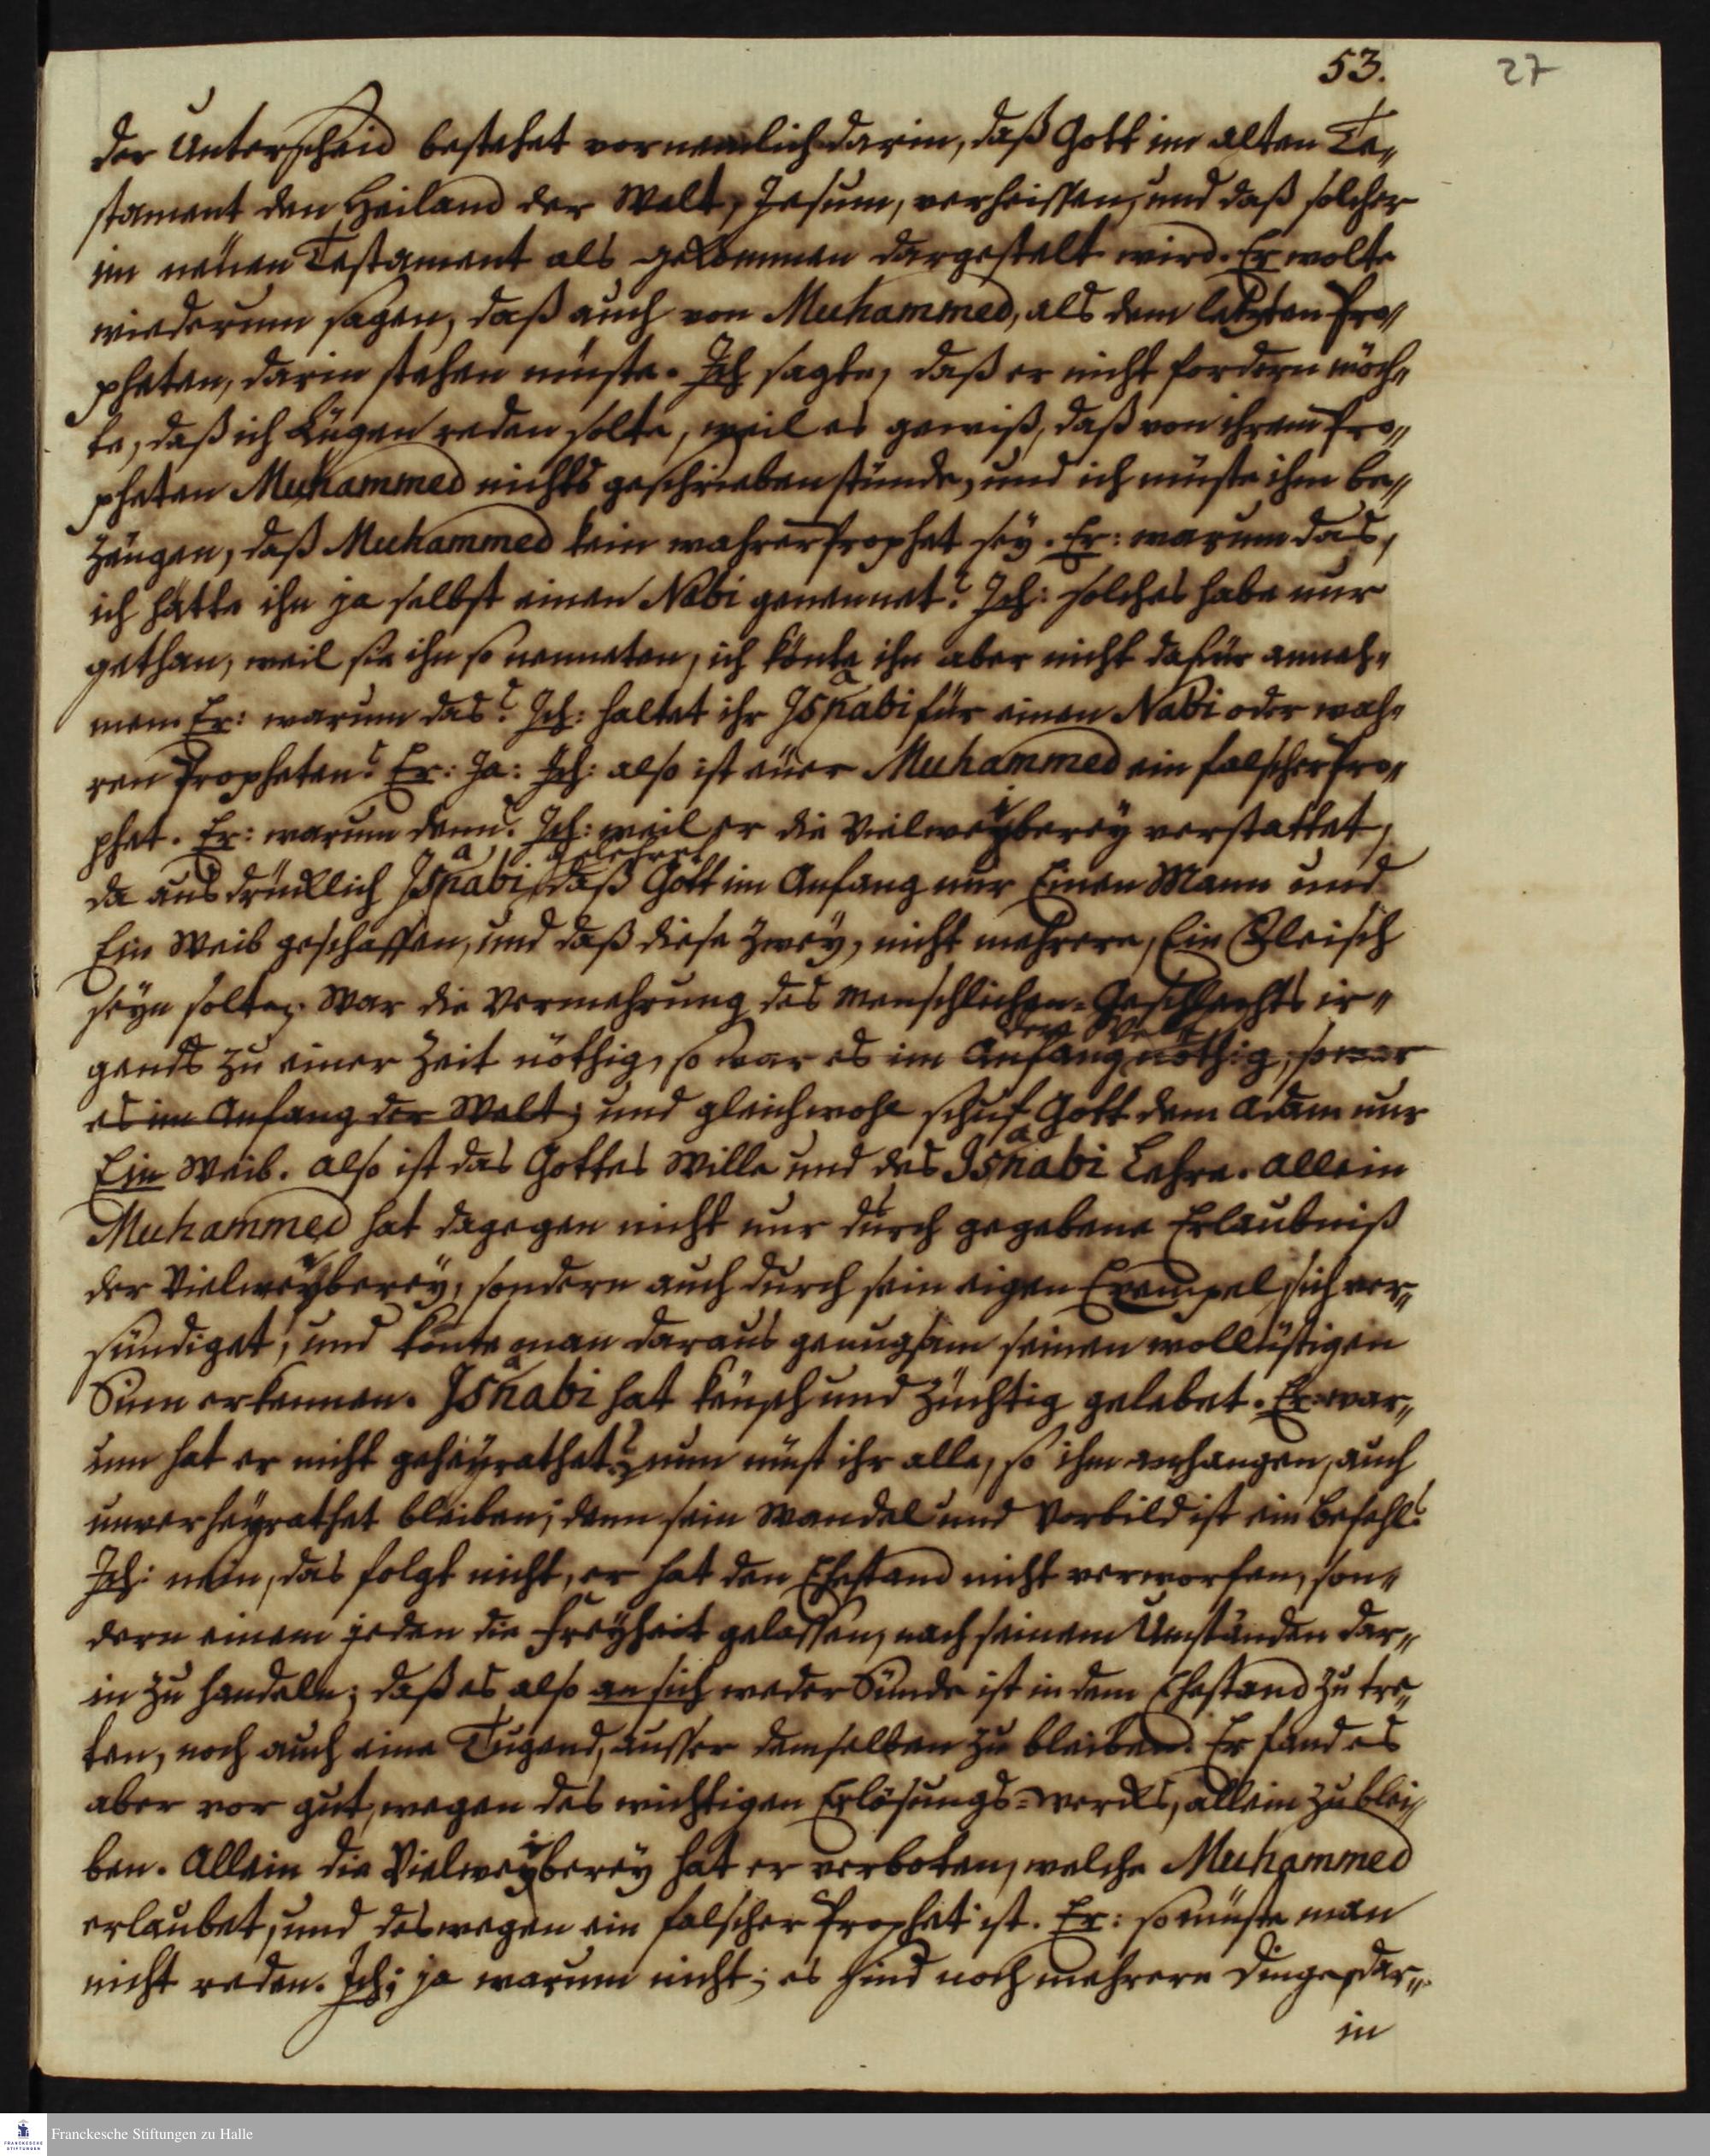 53.
27
der Unterscheid bestehet vornemlich darin, daß Gott im alten Te„
stament den Heiland der Welt, Jesum, verheissen, und daß solcher
im neüen Testament als gekommen dargestelt wird. Er wolte
wiederum sagen, daß auch von Muhammed, als dem letzten Pro„
pheten, darin stehen müste. Ich sagte, daß er nicht fordern möch„
te, daß ich Lügen reden solte, weil es gewiß, daß von ihrem Pro„
pheten Muhammed nichts geschrieben stünde, und ich müste ihm be„
zeugen, daß Muhammed kein wahrer Prophet sey. Er: warum das,
ich hätte ihn ja selbst einen Nabi genennet? Ich: solches habe nur
gethan, weil sie ihn so nenneten, ich könte ihn aber nicht dafür anneh„
men. Er: warum das? Ich: haltet ihr Isanabi für einen Nabi oder wah„
ren Propheten? Er: Ja: Ich: also ist eüer Muhammed ein falscher Pro„
phet. Er: warum denn? Ich: weil er die Vielweiberey verstattet,
da ausdrücklich Isanabi gelehret, daß Gott im Anfang nur Einen Mann und
Ein Weib geschaffen, und daß diese zwey, nicht mehrere, Ein Fleisch
seyn solten. War die Vermehrung des Menschlichen-Geschlechts ir„
gends zu einer Zeit nöthig, so war es im Anfang der Welt nöthig, so war
es im Anfang der Welt; und gleichwohl schuf Gott dem Adam nur
Ein Weib. Also ist das Gottes Wille und des Isanabi Lehre. Allein
Muhammed hat dagegen nicht nur durch gegebene Erlaubniß
der Vielweiberey, sondern auch durch sein eigen Exempel sich ver„
sündiget, und könte man daraus genugsam seinen wollüstigen
Sinn erkennen. Isanabi hat keusch und züchtig gelebet. Er: war„
um hat er nicht geheyrathet? nun müst ihr alle, so ihm anhangen, auch
unverheyrathet bleiben; denn sein Wandel und Vorbild ist ein Befehl?
Ich: nein, das folgt nicht, er hat den Ehestand nicht verworfen, son„
dern einem jeden die Freyheit gelassen, nach seinem Umständen dar„
in zu handeln; daß es also an sich weder Sünde ist in dem Ehestand zu tre„
ten, noch auch eine Tugend, ausser demselben zu bleiben. Er fand es
aber vor gut, wegen des wichtigen Erlösungs-wercks, allein zu blei„
ben. Allein die Vielweiberey hat er verboten, welche Muhammed
erlaubet, und deswegen ein falscher Prophet ist. Er: so müste man
nicht reden. Ich: ja warum nicht; es sind noch mehrere Dinge, dar„
in
Franckesche Stiftungen zu Halle
FRANCKESCHE
STIFTUNGEN